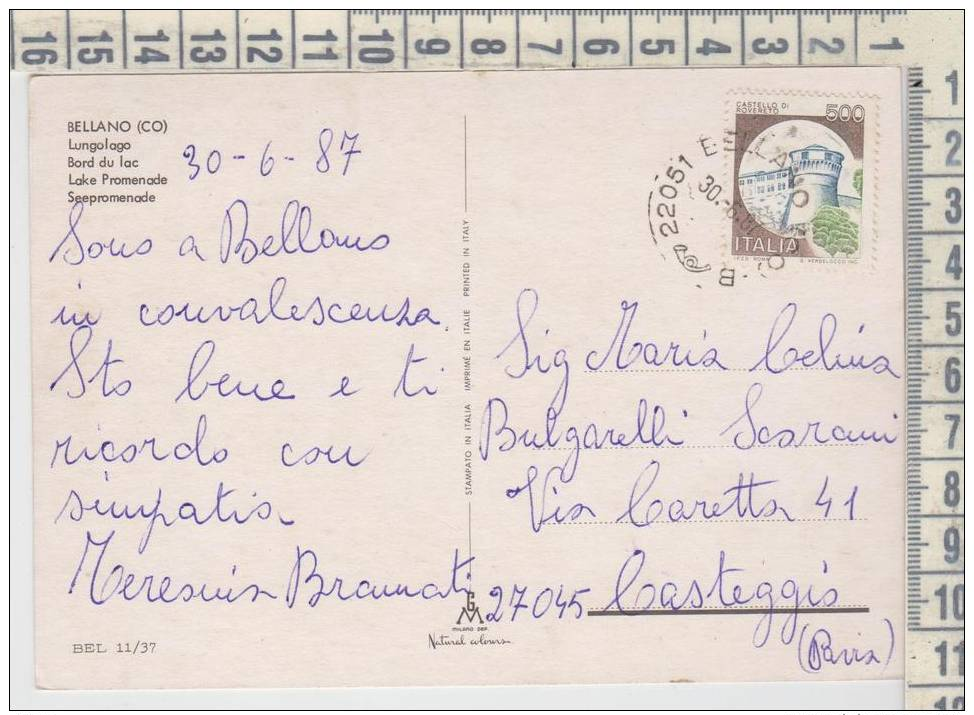 16 15 14 13 12 11 10 9 8 7 6 5 4 3 2 1
BELLANO (CO)
Lungolago
Bord du lac
Lake Promenade
Seepromenade
30-6-87
Sono a Bellano
in convalescenza.
Sto bene e ti
ricordo con
simpatia
Teresina Bramati
BEL 11/37
STAMPATO IN ITALIA IMPRIMÉ EN ITALIE PRINTED IN ITALY
GM
MILANO DEP.
Natural colours
CASTELLO DI
ROVERETO
500
ITALIA
I.P.Z.S. ROMA
22051 BELLANO CO
B
Sig Maria Celina
Bulgarelli Scarani
Via Caretta 41
27045 Casteggio
(Pavia)
1
2
3
4
5
6
7
8
9
10
11
12